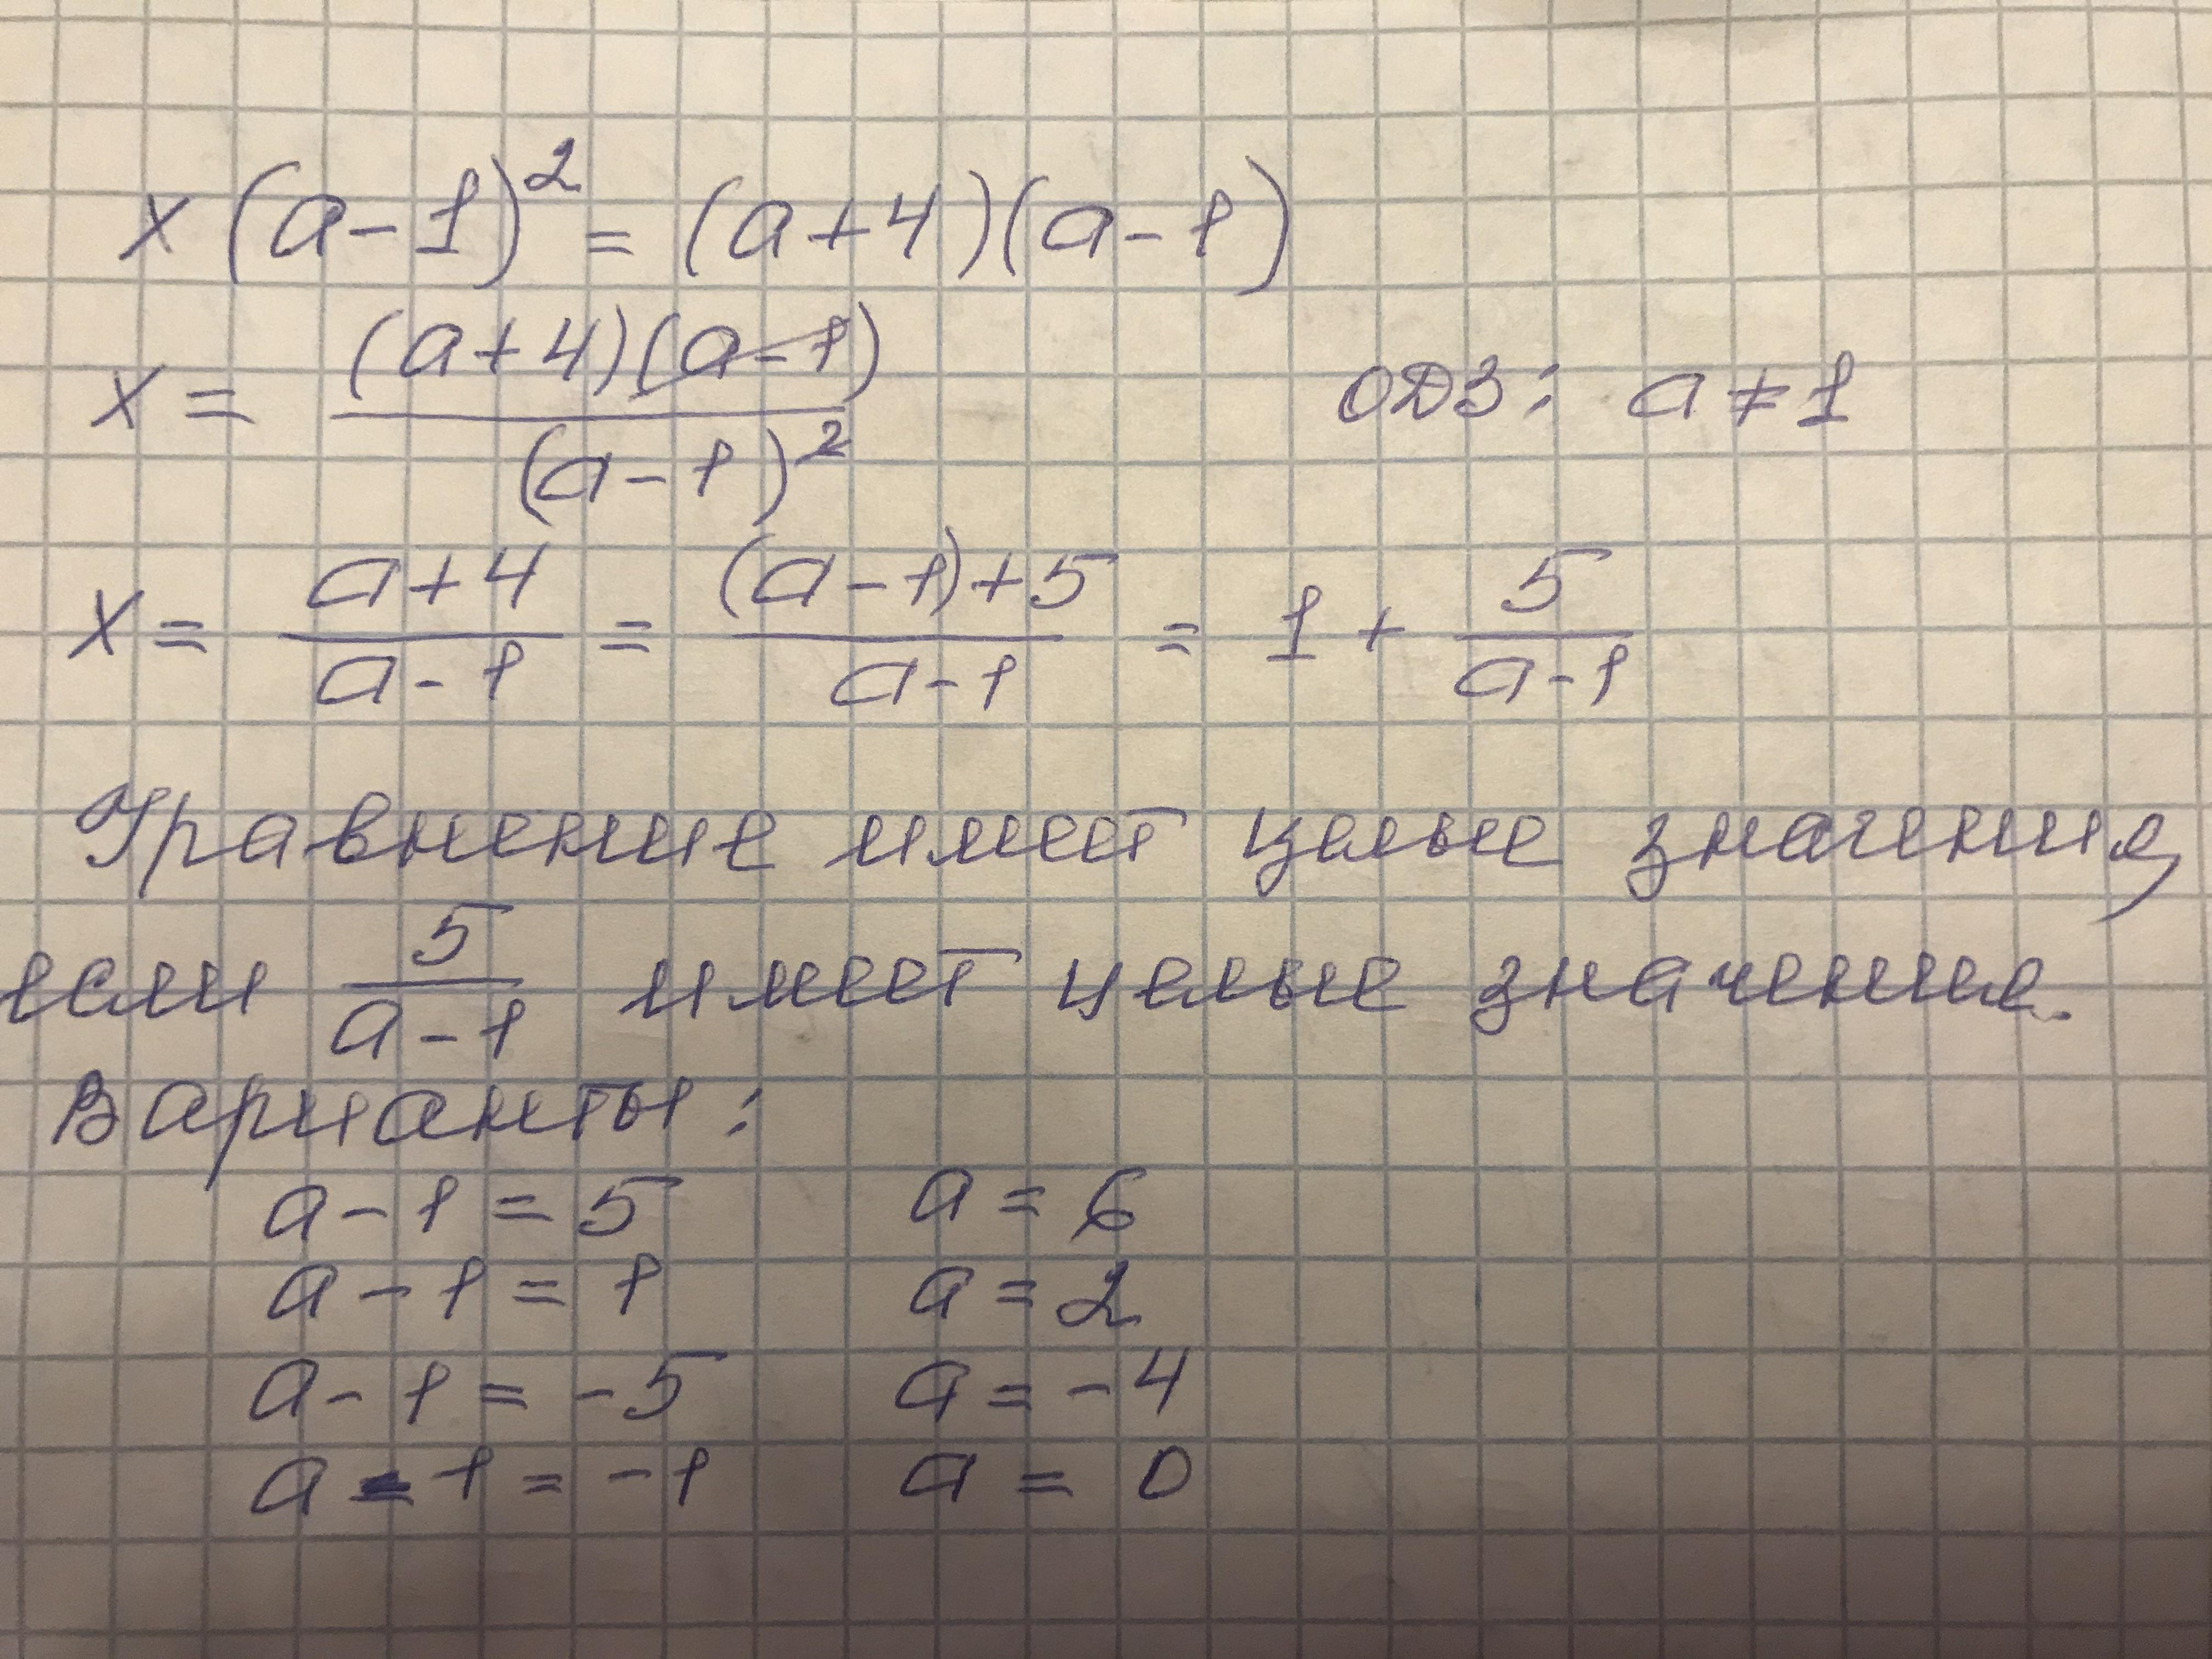 x(a-1)² = (a+4)(a-1)
x = (a+4)(a-1) / (a-1)² ОДЗ: a ≠ 1
x = a+4 / a-1 = (a-1)+5 / a-1 = 1 + 5 / a-1
Уравнение имеет целые значения,
если 5 / a-1 имеет целые значение.
Варианты:
a-1 = 5 a = 6
a-1 = 1 a = 2
a-1 = -5 a = -4
a-1 = -1 a = 0